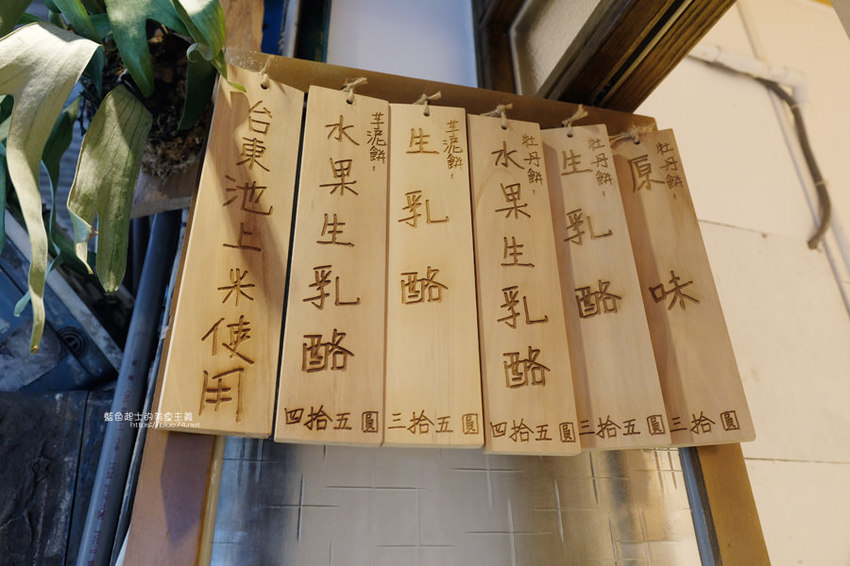 牡丹餅-
原味
三拾圓
牡丹餅-
生乳酪
三拾五圓
牡丹餅-
水果生乳酪
四拾五圓
芋泥餅-
生乳酪
三拾五圓
芋泥餅-
水果生乳酪
四拾五圓
台東池上米使用
藍色起士的美食主義
https://blue74.net